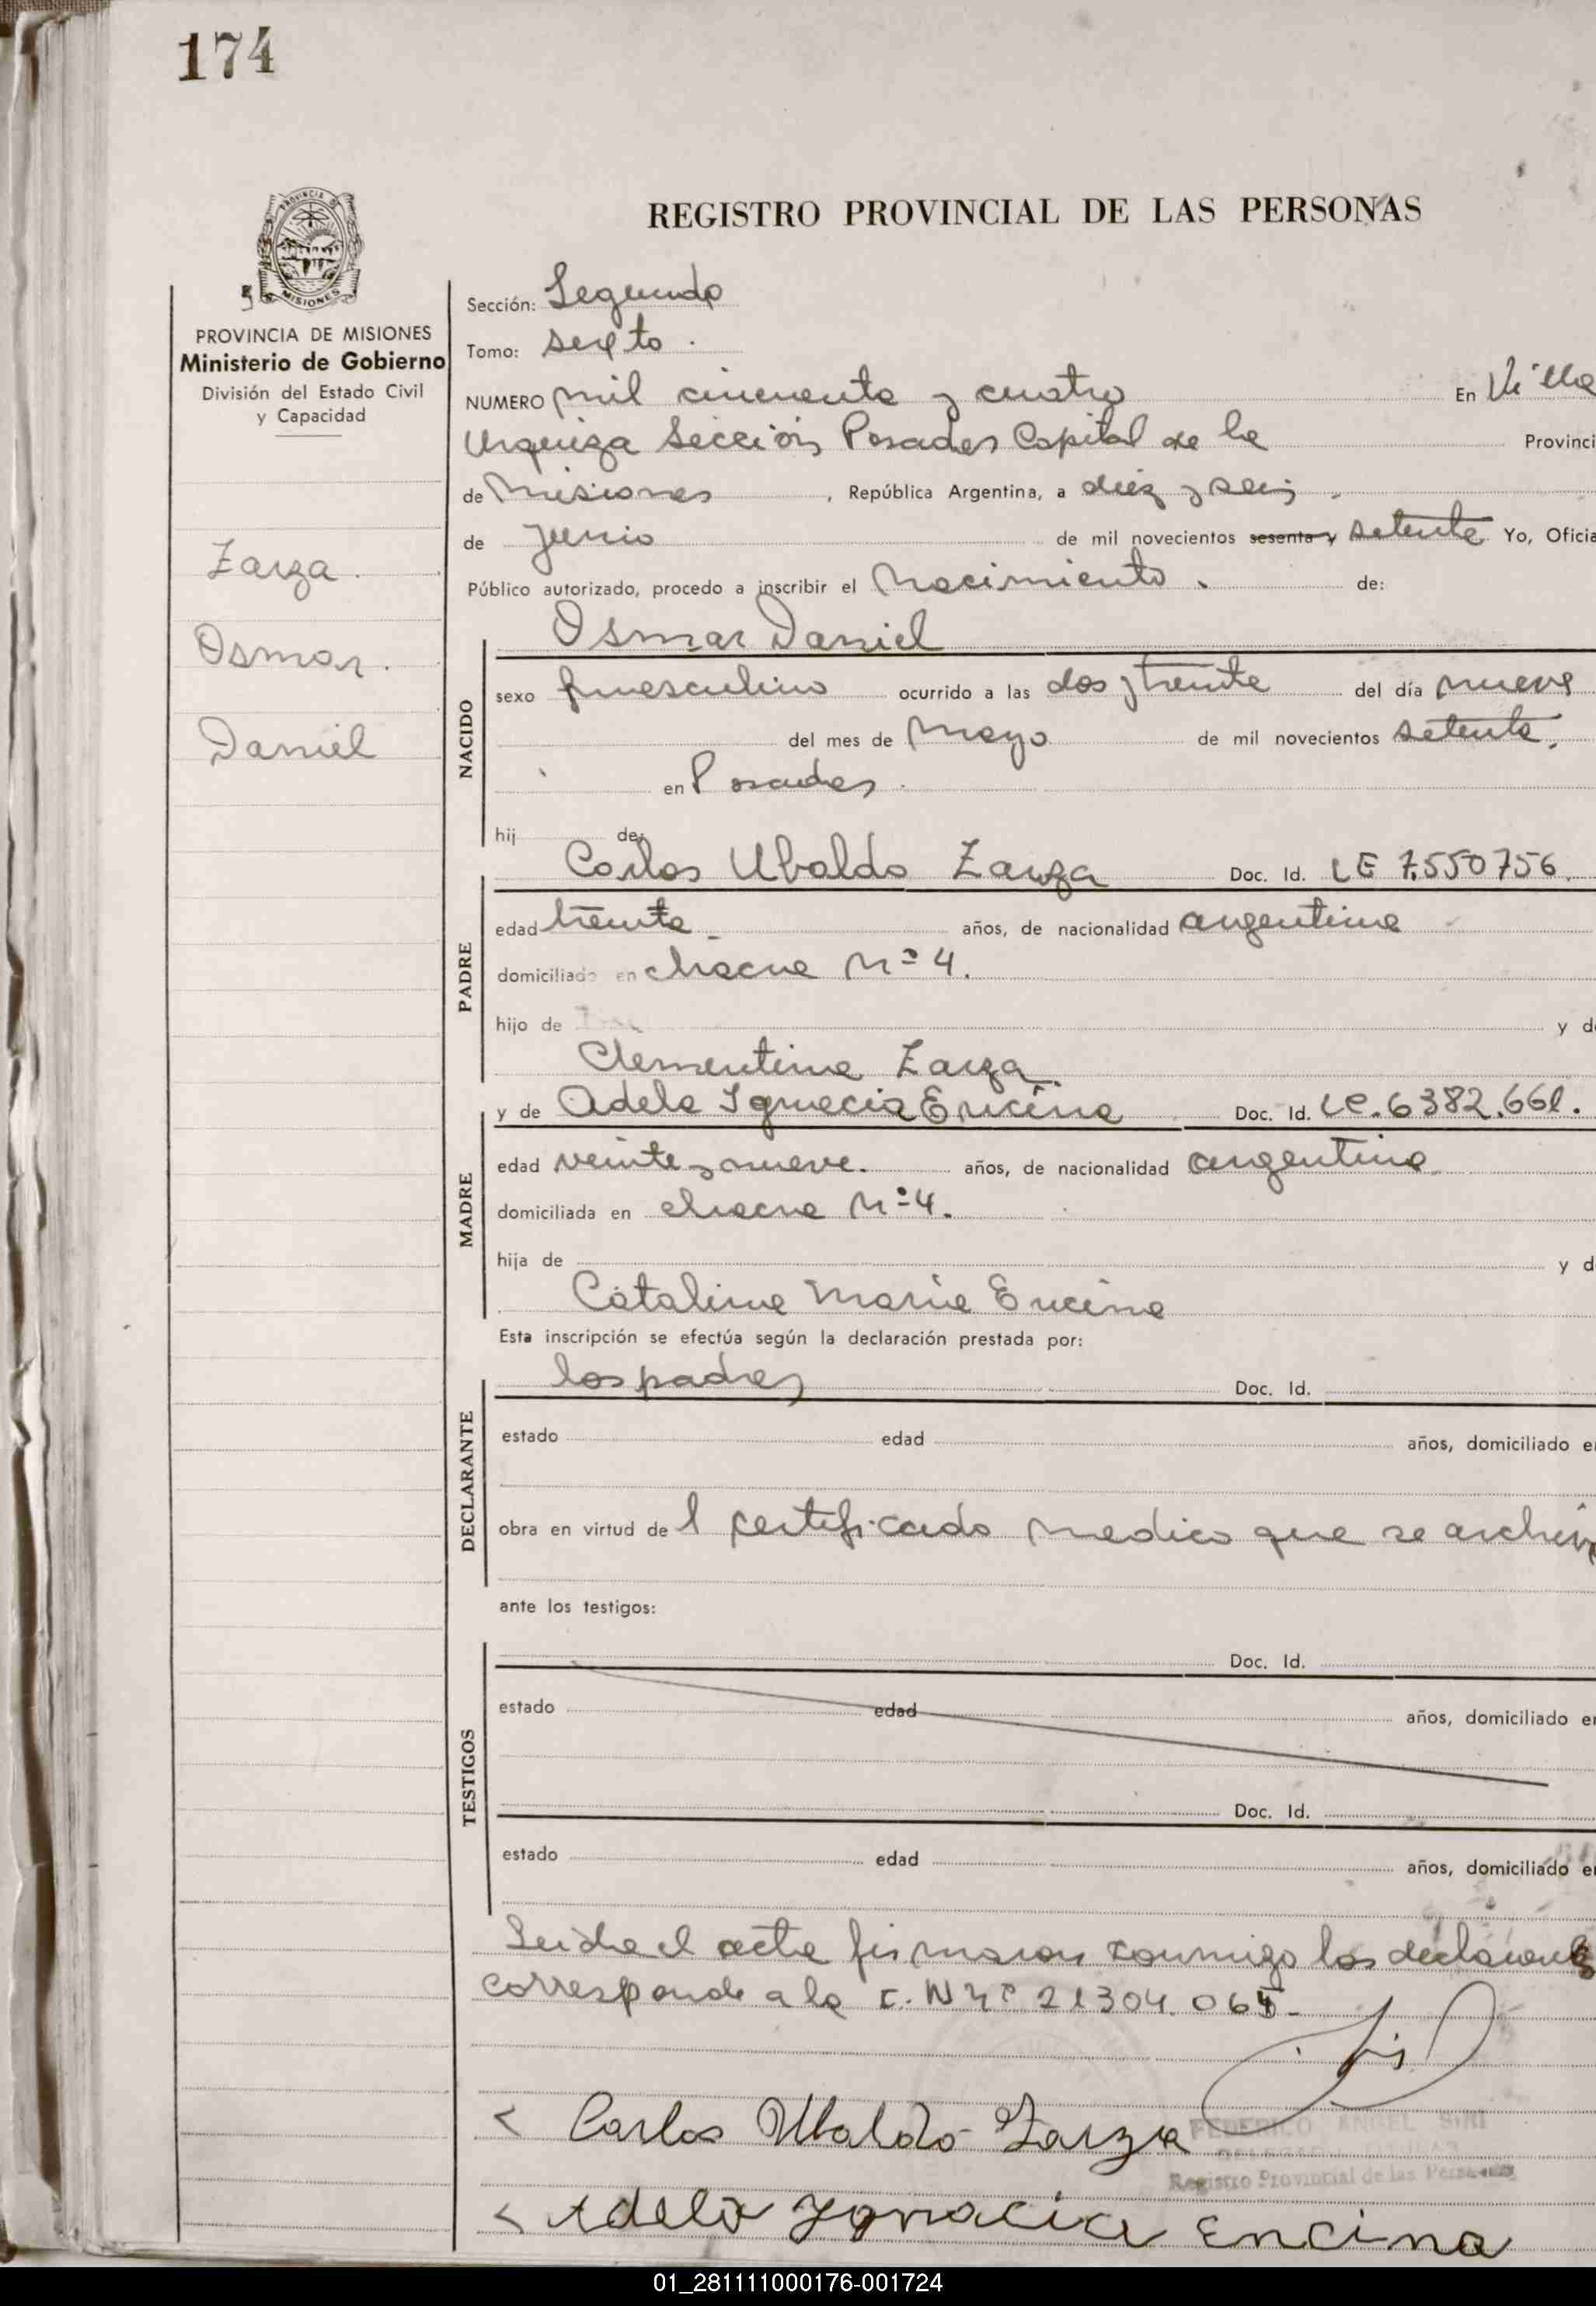 174
PROVINCIA DE
MISIONES
PROVINCIA DE MISIONES
Ministerio de Gobierno
División del Estado Civil
y Capacidad
Zarza
Osmar.
Daniel
REGISTRO PROVINCIAL DE LAS PERSONAS
Sección: Segunda
Tomo: sexto.
NUMERO mil cincuenta y cuatro En Villa
Urquiza Sección Posadas Capital de la Provinci
de Misiones, República Argentina, a diez y seis.
de junio de mil novecientos sesenta y setenta Yo, Oficia
Público autorizado, procedo a inscribir el Nacimiento. de:
Osmar Daniel
NACIDO
sexo masculino ocurrido a las dos y treinta del día nueve
del mes de Mayo de mil novecientos setenta.
en Posadas.
hij de:
Carlos Ubaldo Zarza Doc. Id. LE 7.550756.
PADRE
edad treinta años, de nacionalidad argentina
domiciliado en chacra Nº 4.
hijo de y d
Clementina Zarza.
y de Adela Ignacia Encina Doc. Id. LC. 6382.661.
MADRE
edad veinte y nueve. años, de nacionalidad argentina
domiciliada en chacra Nº 4.
hija de y d
Catalina Maria Encina
Esta inscripción se efectúa según la declaración prestada por:
los padres Doc. Id.
DECLARANTE
estado edad años, domiciliado e
obra en virtud de l certificado medico que se archiva
ante los testigos:
Doc. Id.
TESTIGOS
estado edad años, domiciliado e
Doc. Id.
estado edad años, domiciliado e
Leida el acta firmaron conmigo los declarantes
corresponde a la Nº 21304.064.-
Carlos Ubaldo Zarza
FEDERICO ANGEL SIRI
Registro Provincial de las Personas
Adela Ygnacia Encina
01_281111000176-001724